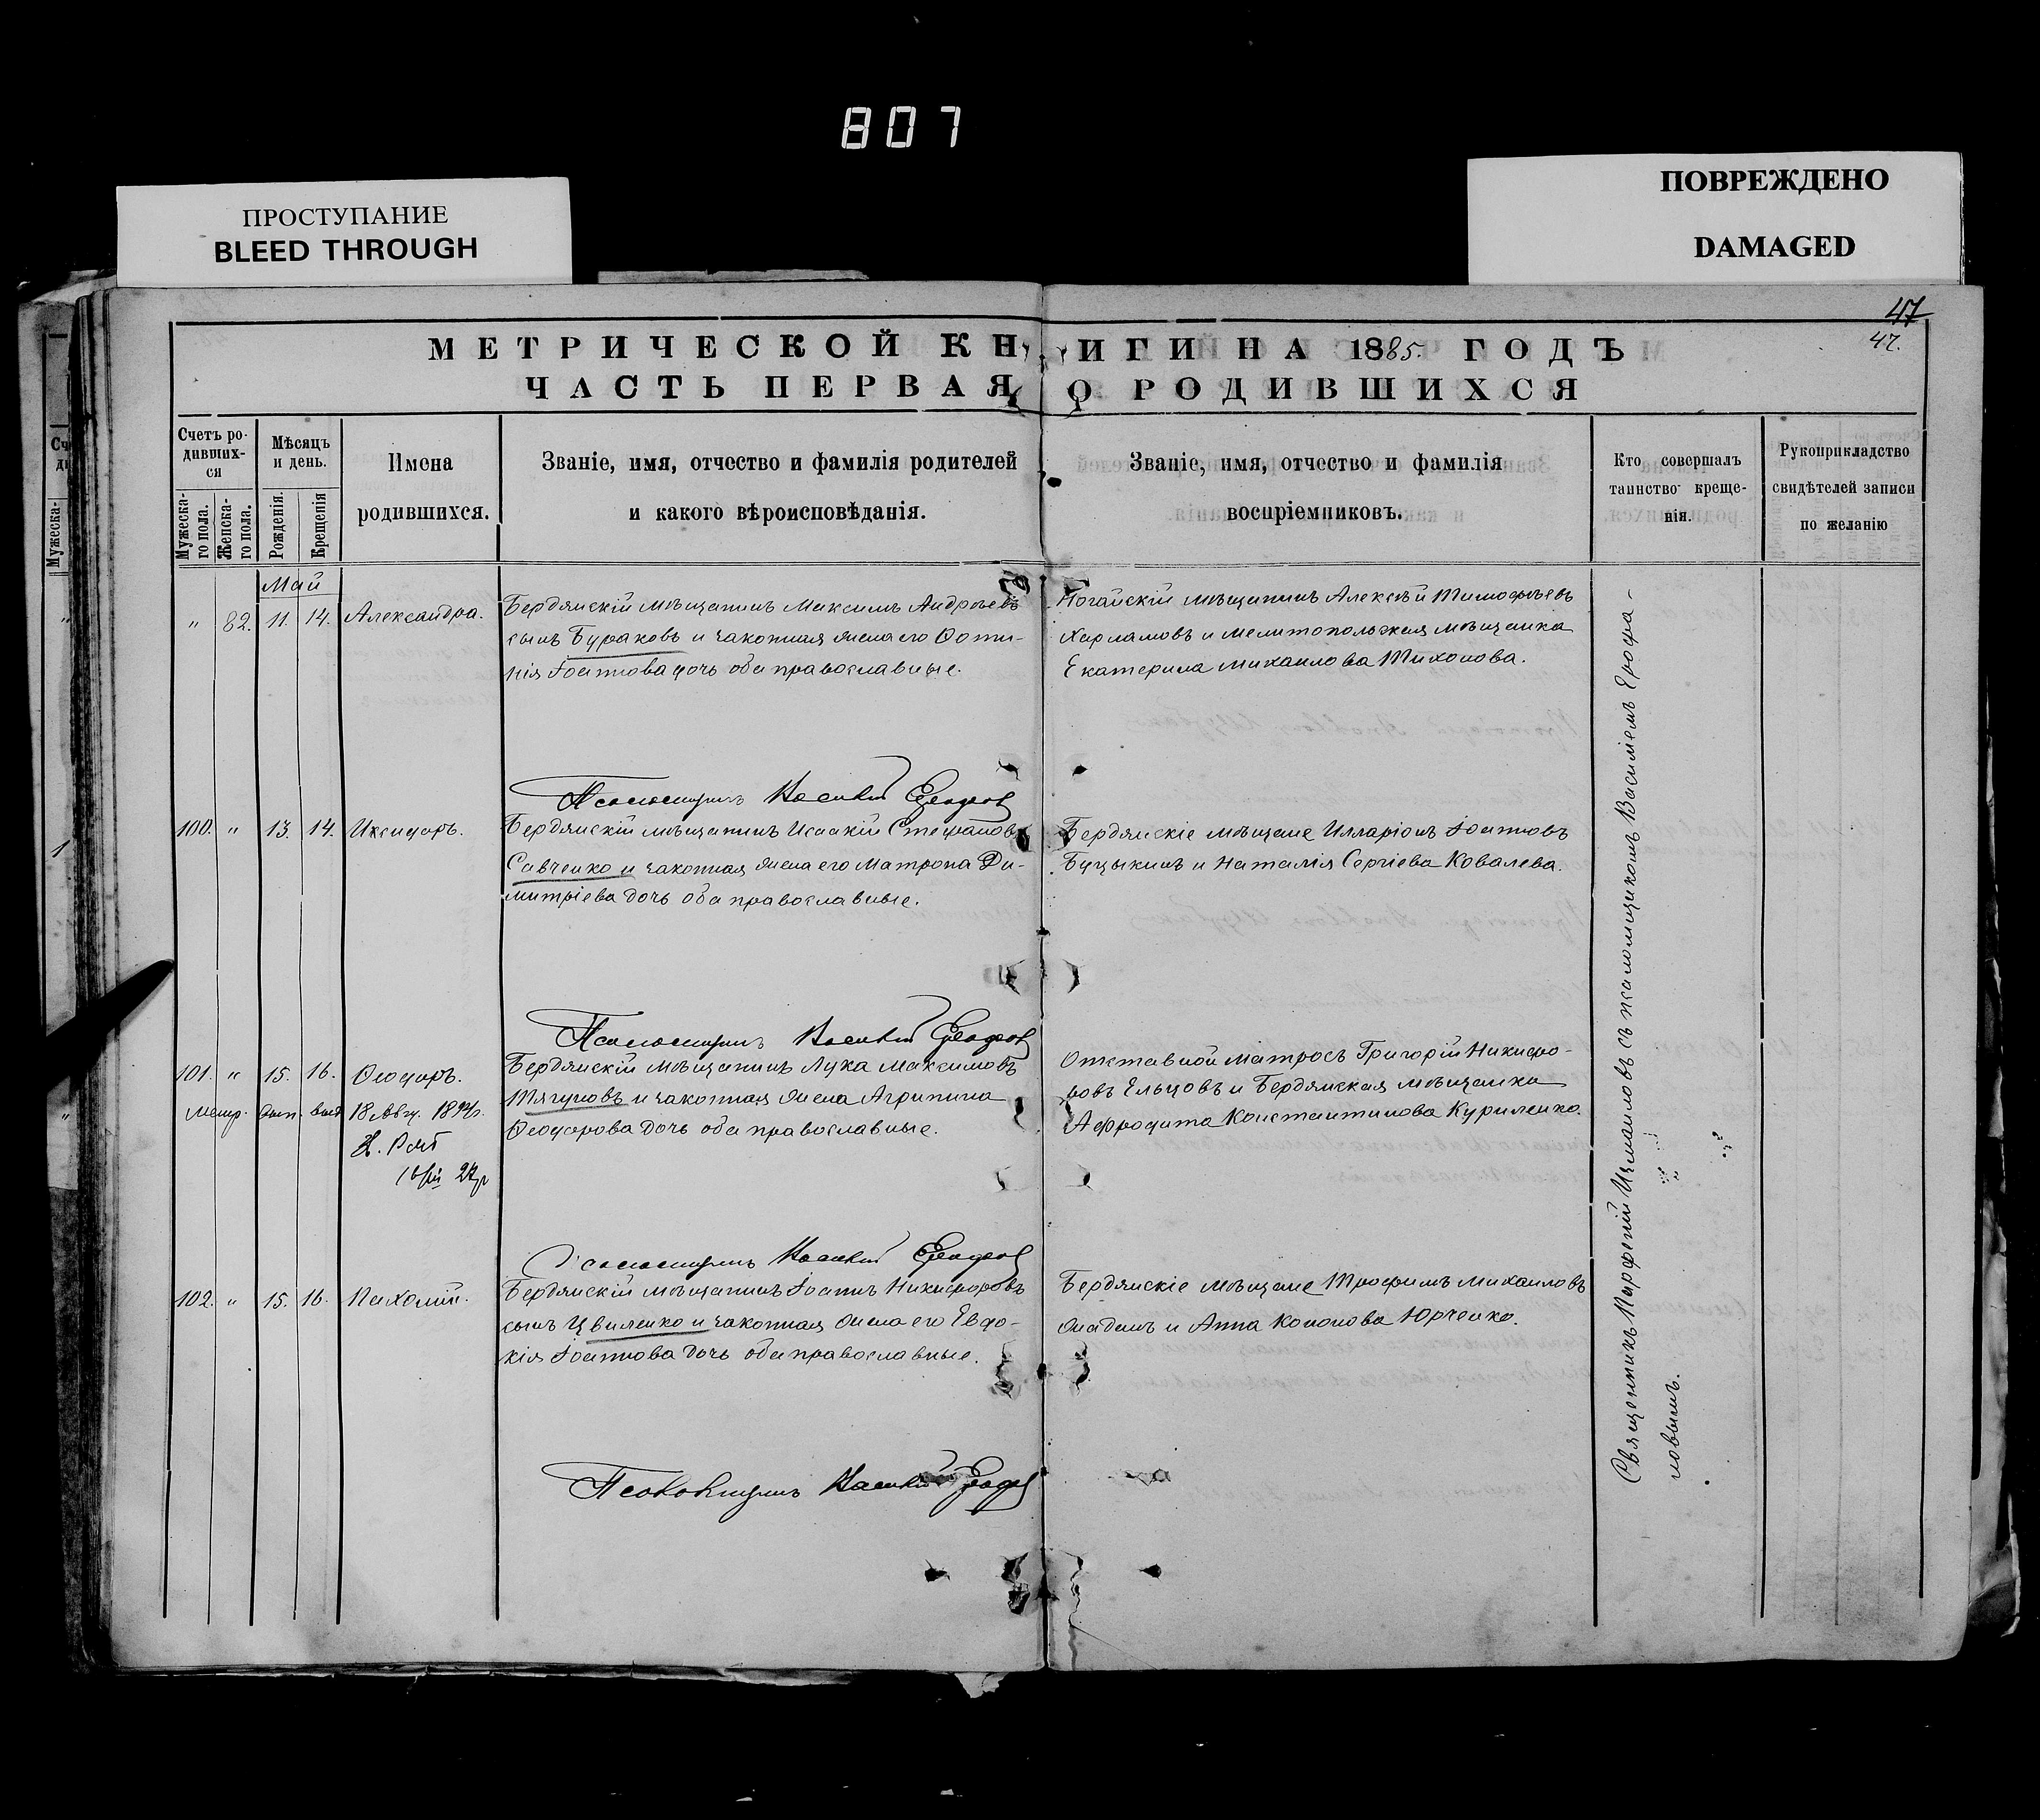 807
ПРОСТУПАНИЕ
BLEED THROUGH
ПОВРЕЖДЕНО
DAMAGED
47
47.
МЕТРИЧЕСКОЙ КНИГИ НА 1885. ГОДЪ
ЧАСТЬ ПЕРВАЯ О РОДИВШИХСЯ
Счетъ ро-
дивших-
ся
Мужеска-
го пола.
Женска-
го пола.
Мѣсяцъ
и день.
Рожденія.
Крещенія
Имена
родившихся.
Званіе, имя, отчество и фамилія родителей
и какого вѣроисповѣданія.
Званіе, имя, отчество и фамилія
воспріемниковъ.
Кто совершалъ
таинство креще-
нія.
Рукоприкладство
свидѣтелей записи
по желанію
Май
" 82. 11. 14. Александра.
Бердянскій мѣщанинъ Максимъ Андреевъ
сынъ Бураковъ и законная жена его Фоти-
нія Іоаннова дочь оба православные.
Ногайскій мѣщанинъ Алексѣй Тимофѣевъ
Харламовъ и мелитопольская мѣщанка
Екатерина Михаилова Тихонова.
Псаломщикъ Василій
100. " 13. 14. Исидоръ.
Бердянскій мѣщанинъ Исаакій Стефановъ
Савченко и законная жена его Матрона Ди-
митріева дочь оба православные.
Бердянскіе мѣщане Илларіонъ Іоанновъ
Буцыкинъ и Наталія Сергіева Ковалева.
Псаломщикъ Василій
101. " 15. 16. Ѳеодоръ.
метр. вып. выд. 18 Авг.
Бердянскій мѣщанинъ Лука Максимовъ
Тягуновъ и законная жена Агрипина
Ѳеодорова дочь оба православные.
Отставной матросъ Григорій Никифо-
ровъ Ельцовъ и Бердянская мѣщанка
Афродита Константинова Куриленко.
Псаломщикъ Василій
102. " 15. 16. Пахомій.
Бердянскій мѣщанинъ Іоаннъ Никифоровъ
сынъ Цвиленко и законная жена его Евдо-
кія Іоаннова дочь оба православные.
Бердянскіе мѣщане Трофимъ Михаиловъ
и Анна Кононова Юрченко.
Псаломщикъ Василій
Священникъ Парфеній Измаиловъ съ псаломщикомъ Василіемъ Ерофа-
новымъ.